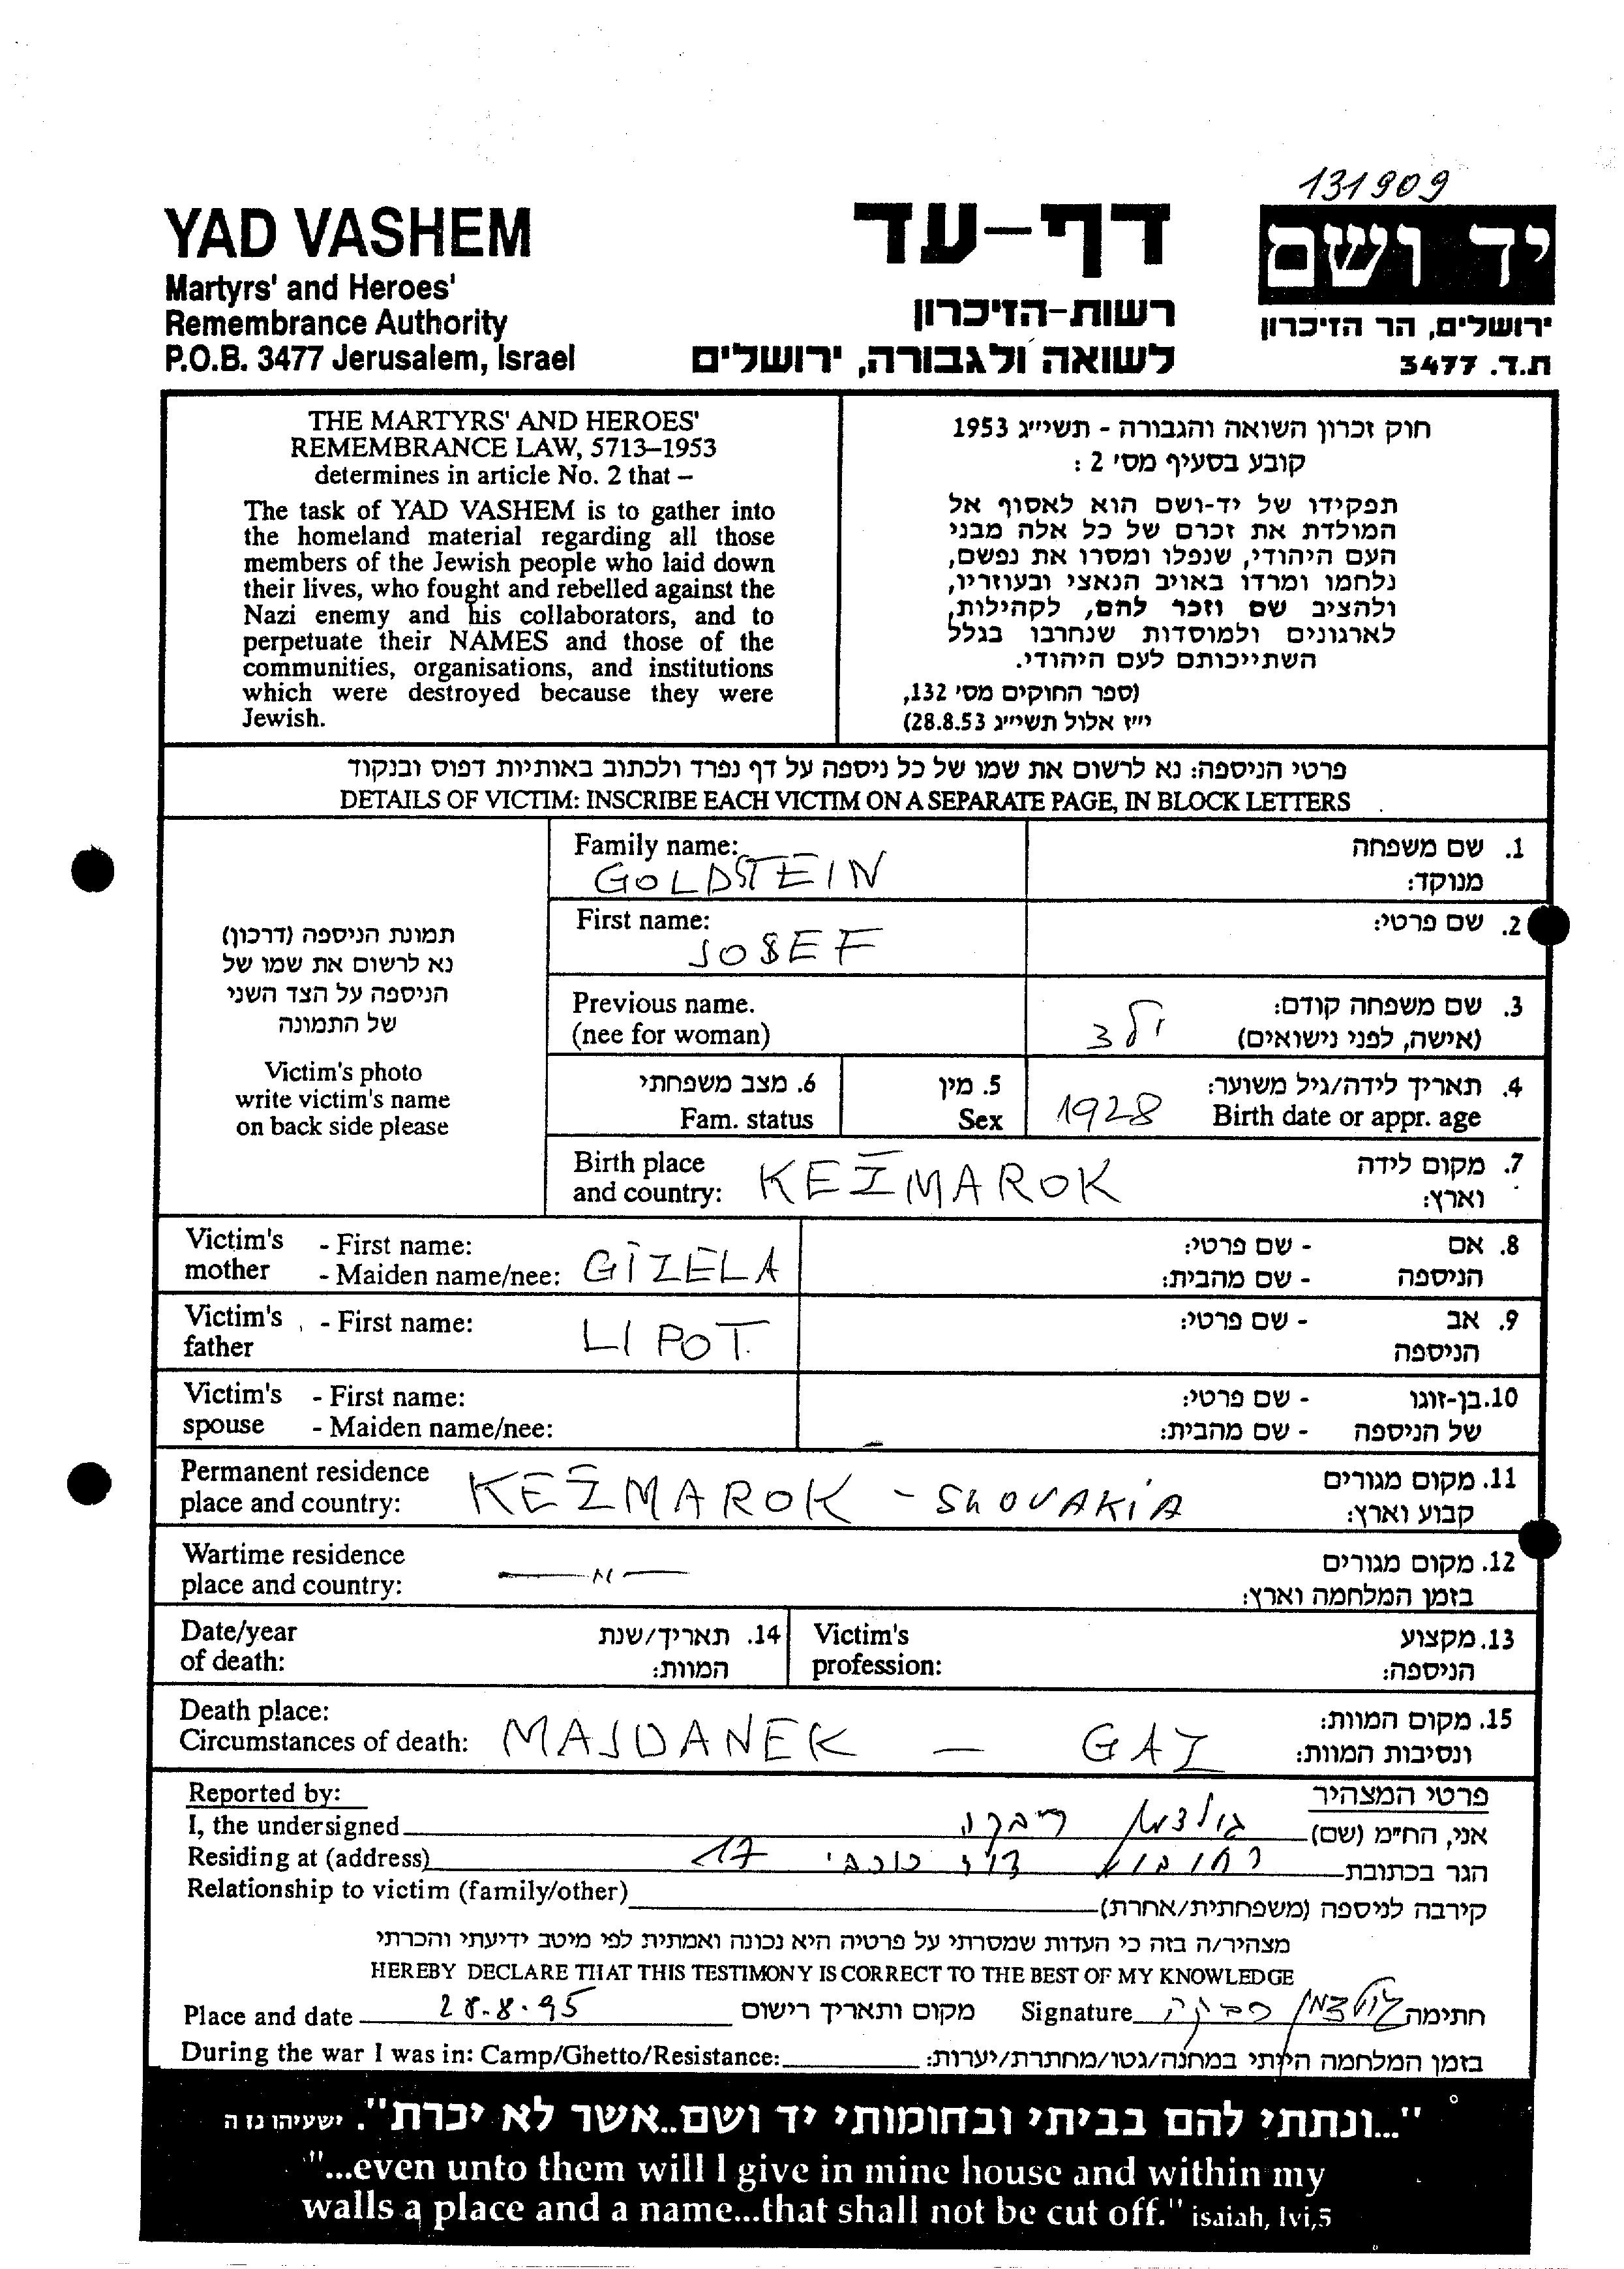 131909
YAD VASHEM
Martyrs' and Heroes'
Remembrance Authority
P.O.B. 3477 Jerusalem, Israel
דף-עד
רשות-הזיכרון
לשואה ולגבורה, ירושלים
יד ושם
ירושלים, הר הזיכרון
ת.ד. 3477
THE MARTYRS' AND HEROES'
REMEMBRANCE LAW, 5713–1953
determines in article No. 2 that –
The task of YAD VASHEM is to gather into
the homeland material regarding all those
members of the Jewish people who laid down
their lives, who fought and rebelled against the
Nazi enemy and his collaborators, and to
perpetuate their NAMES and those of the
communities, organisations, and institutions
which were destroyed because they were
Jewish.
חוק זכרון השואה והגבורה - תשי״ג 1953
קובע בסעיף מס׳ 2 :
תפקידו של יד-ושם הוא לאסוף אל
המולדת את זכרם של כל אלה מבני
העם היהודי, שנפלו ומסרו את נפשם,
נלחמו ומרדו באויב הנאצי ובעוזריו,
ולהציב שם וזכר להם, לקהילות,
לארגונים ולמוסדות שנחרבו בגלל
השתייכותם לעם היהודי.
(ספר החוקים מס׳ 132,
י״ז אלול תשי״ג 28.8.53)
פרטי הניספה: נא לרשום את שמו של כל ניספה על דף נפרד ולכתוב באותיות דפוס ובנקוד
DETAILS OF VICTIM: INSCRIBE EACH VICTIM ON A SEPARATE PAGE, IN BLOCK LETTERS
תמונת הניספה (דרכון)
נא לרשום את שמו של
הניספה על הצד השני
של התמונה
Victim's photo
write victim's name
on back side please
Family name: 1. שם משפחה
GOLDSTEIN מנוקד:
First name: 2. שם פרטי:
JOSEF
Previous name. 3. שם משפחה קודם:
(nee for woman) ילד (אישה, לפני נישואים)
6. מצב משפחתי 5. מין 4. תאריך לידה/גיל משוער:
Fam. status Sex 1928 Birth date or appr. age
Birth place 7. מקום לידה
and country: KEŽMAROK וארץ:
Victim's - First name: 8. אם - שם פרטי:
mother - Maiden name/nee: GIZELA הניספה - שם מהבית:
Victim's - First name: LIPOT. 9. אב - שם פרטי:
father הניספה
Victim's - First name: 10. בן-זוגו - שם פרטי:
spouse - Maiden name/nee: – של הניספה - שם מהבית:
Permanent residence 11. מקום מגורים
place and country: KEŽMAROK - SLOVAKIA קבוע וארץ:
Wartime residence 12. מקום מגורים
place and country: —〃— בזמן המלחמה וארץ:
Date/year 14. תאריך/שנת Victim's 13. מקצוע
of death: המוות: profession: הניספה:
Death place: 15. מקום המוות:
Circumstances of death: MAJDANEK — GAZ ונסיבות המוות:
Reported by: פרטי המצהיר
I, the undersigned גולדמן רבקה אני, הח״מ (שם)
Residing at (address) רחובות 17 הגר בכתובת
Relationship to victim (family/other) קירבה לניספה (משפחתית/אחרת)
מצהיר/ה בזה כי העדות שמסרתי על פרטיה היא נכונה ואמתית לפי מיטב ידיעתי והכרתי
HEREBY DECLARE THAT THIS TESTIMONY IS CORRECT TO THE BEST OF MY KNOWLEDGE
Place and date 28.8.95 מקום ותאריך רישום Signature גולדמן רבקה חתימה
During the war I was in: Camp/Ghetto/Resistance: בזמן המלחמה הייתי במחנה/גטו/מחתרת/יערות:
"...ונתתי להם בביתי ובחומותי יד ושם..אשר לא יכרת". ישעיהו נז ה
"...even unto them will I give in mine house and within my
walls a place and a name...that shall not be cut off." isaiah, lvi,5